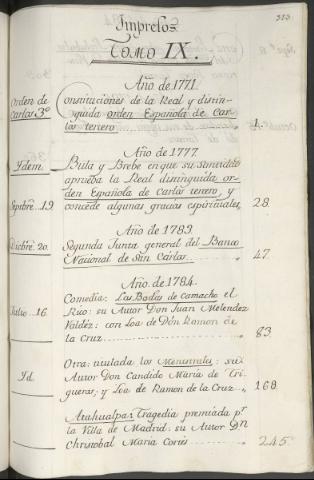 323.
Impresos.
TOMO IX.
Año de 1771.
Orden de Carlos 3º
Constituciones de la Real y distin-
guida orden Española de Car-
los tercero 1.
Año de 1777.
Ydem.
Bula y Brebe en que su Santidad
aprueba la Real distinguida or-
den Española de Carlos tercero, y
Septbre. 19.
concede algunas gracias espirituales, 28.
Año de 1783.
Dicibre. 20.
Segunda Junta general del Banco
Nacional de San Carlos 47.
Año de 1784.
Comedia: Las Bodas de Camacho el
Julio 16.
Rico: su Autor Don Juan Melendez
Valdéz: con Loa de Don Ramon de
la Cruz 83.
Otra: titulada los Menestrales: su
Yd.
Autor Don Candido Maria de Tri-
gueros; y Loa de Ramon de la Cruz 168.
Atahualpa: Tragedia premiada pr
la Villa de Madrid: su Autor Dn
Christobal Maria Cortés 245.